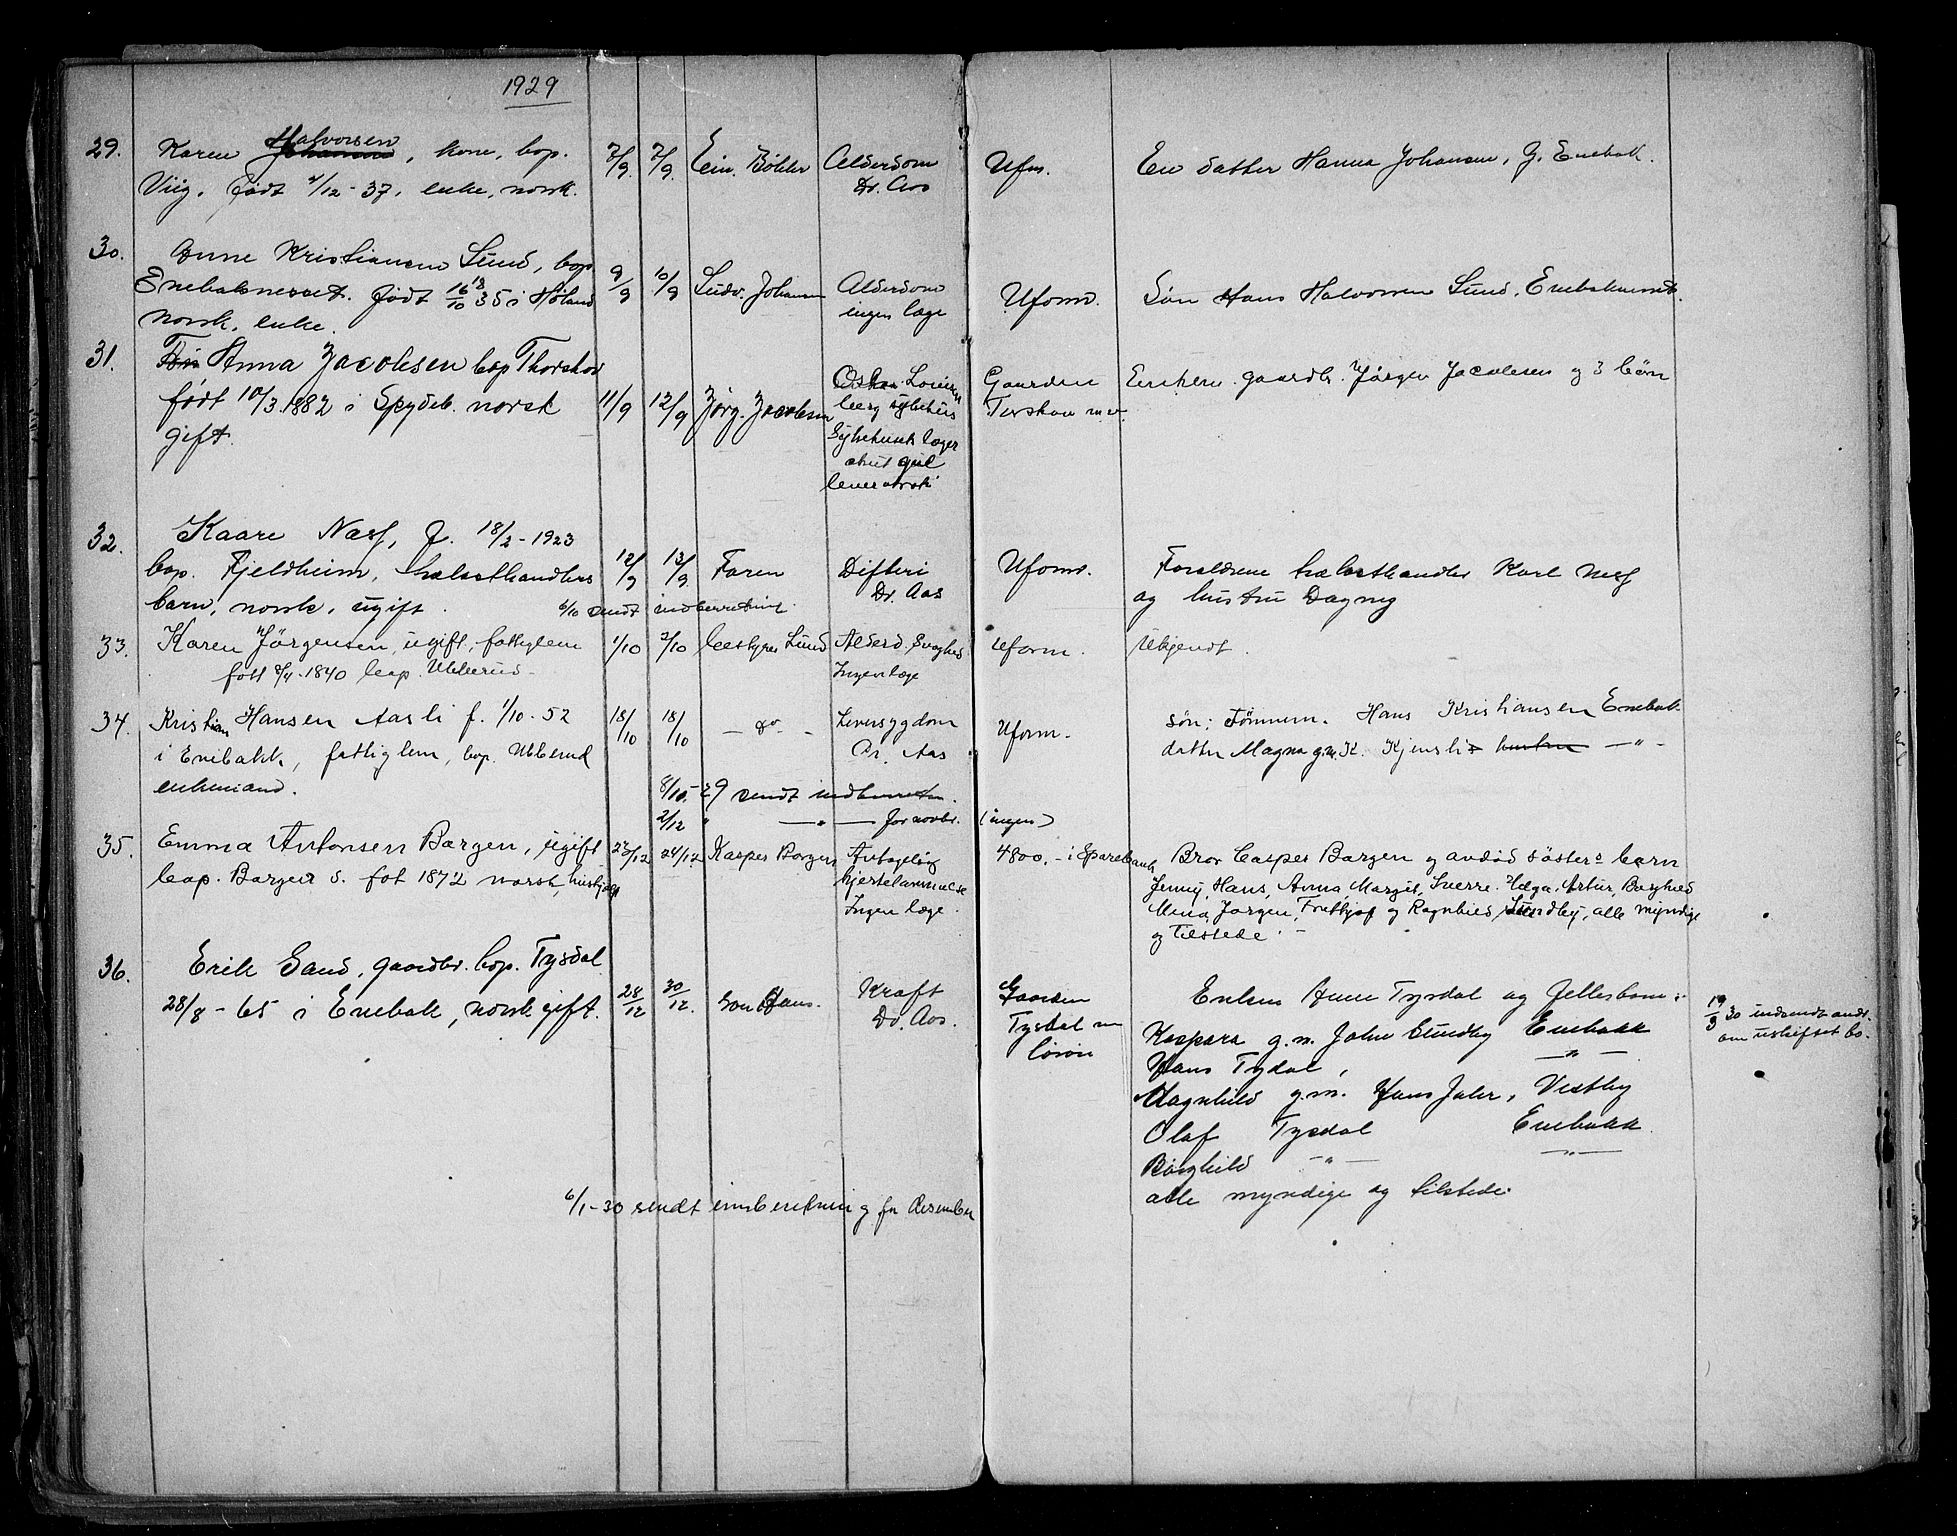 1929
29. Karen Halvorsen, kone, bop. 7/9. 7/9. Ein. Böhler Alderdom Ufm. En datter Hanna Johansen, Y. Enebak.
Viig, født 4/12-37, enke, norsk. Dr. Aas
30. Anne Kristiansen Sund, bop. 9/9 10/9 Ludv. Johansen Alderdom Uform. Søn Hans Halvorsen Sund, Enebaknesset.
Enebaknesset. født 16/10 1835 i Høland ingen læge
norsk, enke.
31. Anna Jacobsen bop Thorshov 11/9 12/9 Jørg. Jacobsen Gaarden Enkem. gaardbr. Jørgen Jacobsen og 3 børn
født 10/3.1882 i Spydeb. norsk berg sykehus Torshov m.v.
gift. Sykehusets læger
akut gul
leveratrofi
32. Kaare Næss, f. 18/2-1923 12/9 13/9 Faren Difteri Uform. Forældrene hælosthandler Karl Næss
bop. Fjeldheim, Dr. Aas og hustru Dagny
barn, norsk, ugift. 6/10 sendt indberetning.
33. Karen Jørgensen, ugift, fattiglem 1/10 2/10 bestyrer Lund Alderd. Svaghed Uform. Ukjendt.
født 8/4-1840 bop. Ubberud Ingen læge
34. Kristian Hansen Aasli f. 1/10-52 18/10 18/10 — do — Leversygdom Uform. søn: Tömmerm. Hans Kristiansen Enebak
i Enebakk, fattiglem, bop. Ubberud Dr. Aas datter Magna g.m. K. Kjensli — " —
enkemand.
8/10-29 sendt indberetn.
2/12 " — " — for novbr. (ingen)
35. Emma Antonsen Bargen, ugift 23/12 24/12 Kasper Borgen Antagelig 4800.- i Sparebank Bror Casper Bargen og avdød søsters barn
bop. Bargen s. føt 1872 norsk, hushj. hjertelammelse Jenny, Hans, Anna Margit, Sverre. Helga, Artur, Borghild
Ingen læge. Mina, Jørgen, Fridtjof og Ragnhild Sundby, alle myndige
og tilstede.
36. Erik Sand, gaardbr. bop. Tysdal 28/12 30/12. Søn Hans. Kræft Gaarden Enken Anne Tysdal og fellesbarn:
28/8-65 i Enebak, norsk gift. Dr. Aas. Tysdal m Kaspara g.m. John Sundby Enebakk 19/3 30 indsendt andr.
løsøre Hans Tysdal, — " — om uskiftet bo.
Magnhild g.m. Hans Jaler, Vestby
Olaf Tysdal Enebakk
Borghild — " — — " —
alle myndige og tilstede.
6/1-30 sendt innberetning for desember